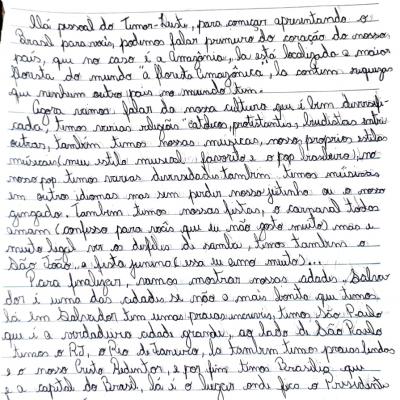 Olá pessoal do Timor-Leste, para começar apresentando o
Brasil para vocês, podemos falar primeiro do coração do nosso
país, que no caso é a Amazônia, la está localizada a maior
floresta do mundo "a floresta Amazônica", la contem riquezas
que nenhum outro país no mundo tem.
Agora vamos falar da nossa cultura que é bem diversifi-
cada, temos varias religiões "católicos, protestantes, budistas entre
outras, também temos nossas musicas, nosso proprios estilos
musicais (meu estilo musical favorito e o pop brasileiro), no
nosso pop temos varias diversidade também temos musicais
em outro idiomas mas sem perder nosso jeitinho ou o nosso
gingado. Também temos nossas festas, o carnaval todos
amam (confesso para vocês que eu não gosto muito) mas e
muito legal ver os desfiles de samba, temos também o
São João, a festa junina (essa eu amo muito)...
Para finalizar, vamos mostrar nossas cidades. Salva-
dor é uma das cidades se não a mais bonita que temos,
lá em Salvador tem umas praias incriveis, temos São Paulo
que é a verdadeira cidade grande, ao lado de São Paulo
temos o RJ, o Rio de Janeiro, la também temos praias lindas
e o nosso Cristo Redentor, e por fim temos Brasilia que
e a capital do Brasil, lá é o lugar onde fica o Presidente